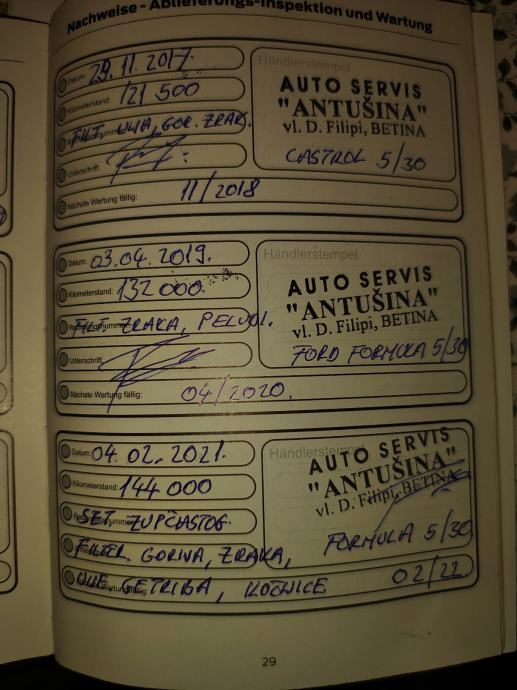 Nachweise - Ablieferungs-Inspektion und Wartung
Datum: 29.11.2017.
Kilometerstand: 121 500
FILT. ULJA, GOR. ZRAK.
Unterschrift:
Nächste Wartung fällig: 11/2018
Händlerstempel
AUTO SERVIS
"ANTUŠINA"
vl. D. Filipi, BETINA
CASTROL 5/30
Datum: 03.04.2019.
Kilometerstand: 132 000.
FILT. ZRAKA, PELUDI.
Unterschrift:
Nächste Wartung fällig: 04/2020.
Händlerstempel
AUTO SERVIS
"ANTUŠINA"
vl. D. Filipi, BETINA
FORD FORMULA 5/30
Datum: 04.02.2021.
Kilometerstand: 144 000
SET ZUPČASTOG.
FILTER. GORIVA, ZRAKA,
ULJE GETRIBA, KOČNICE 02/22.
Händlerstempel
AUTO SERVIS
"ANTUŠINA"
vl. D. Filipi, BETINA
FORMULA 5/30
29